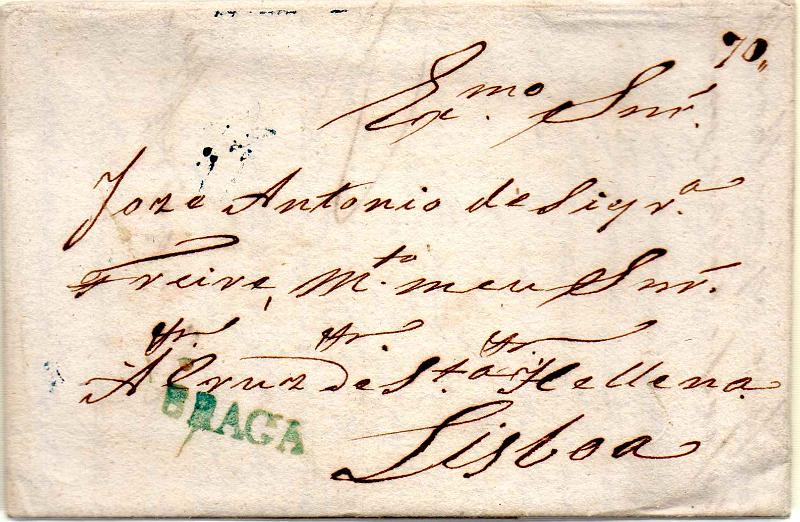 70,,
Ex.mo Snr.
Joze Antonio de Siqr.a
Freire, M.to meu Snr.
A Cruz de St.a Hellena
BRAGA
Lisboa